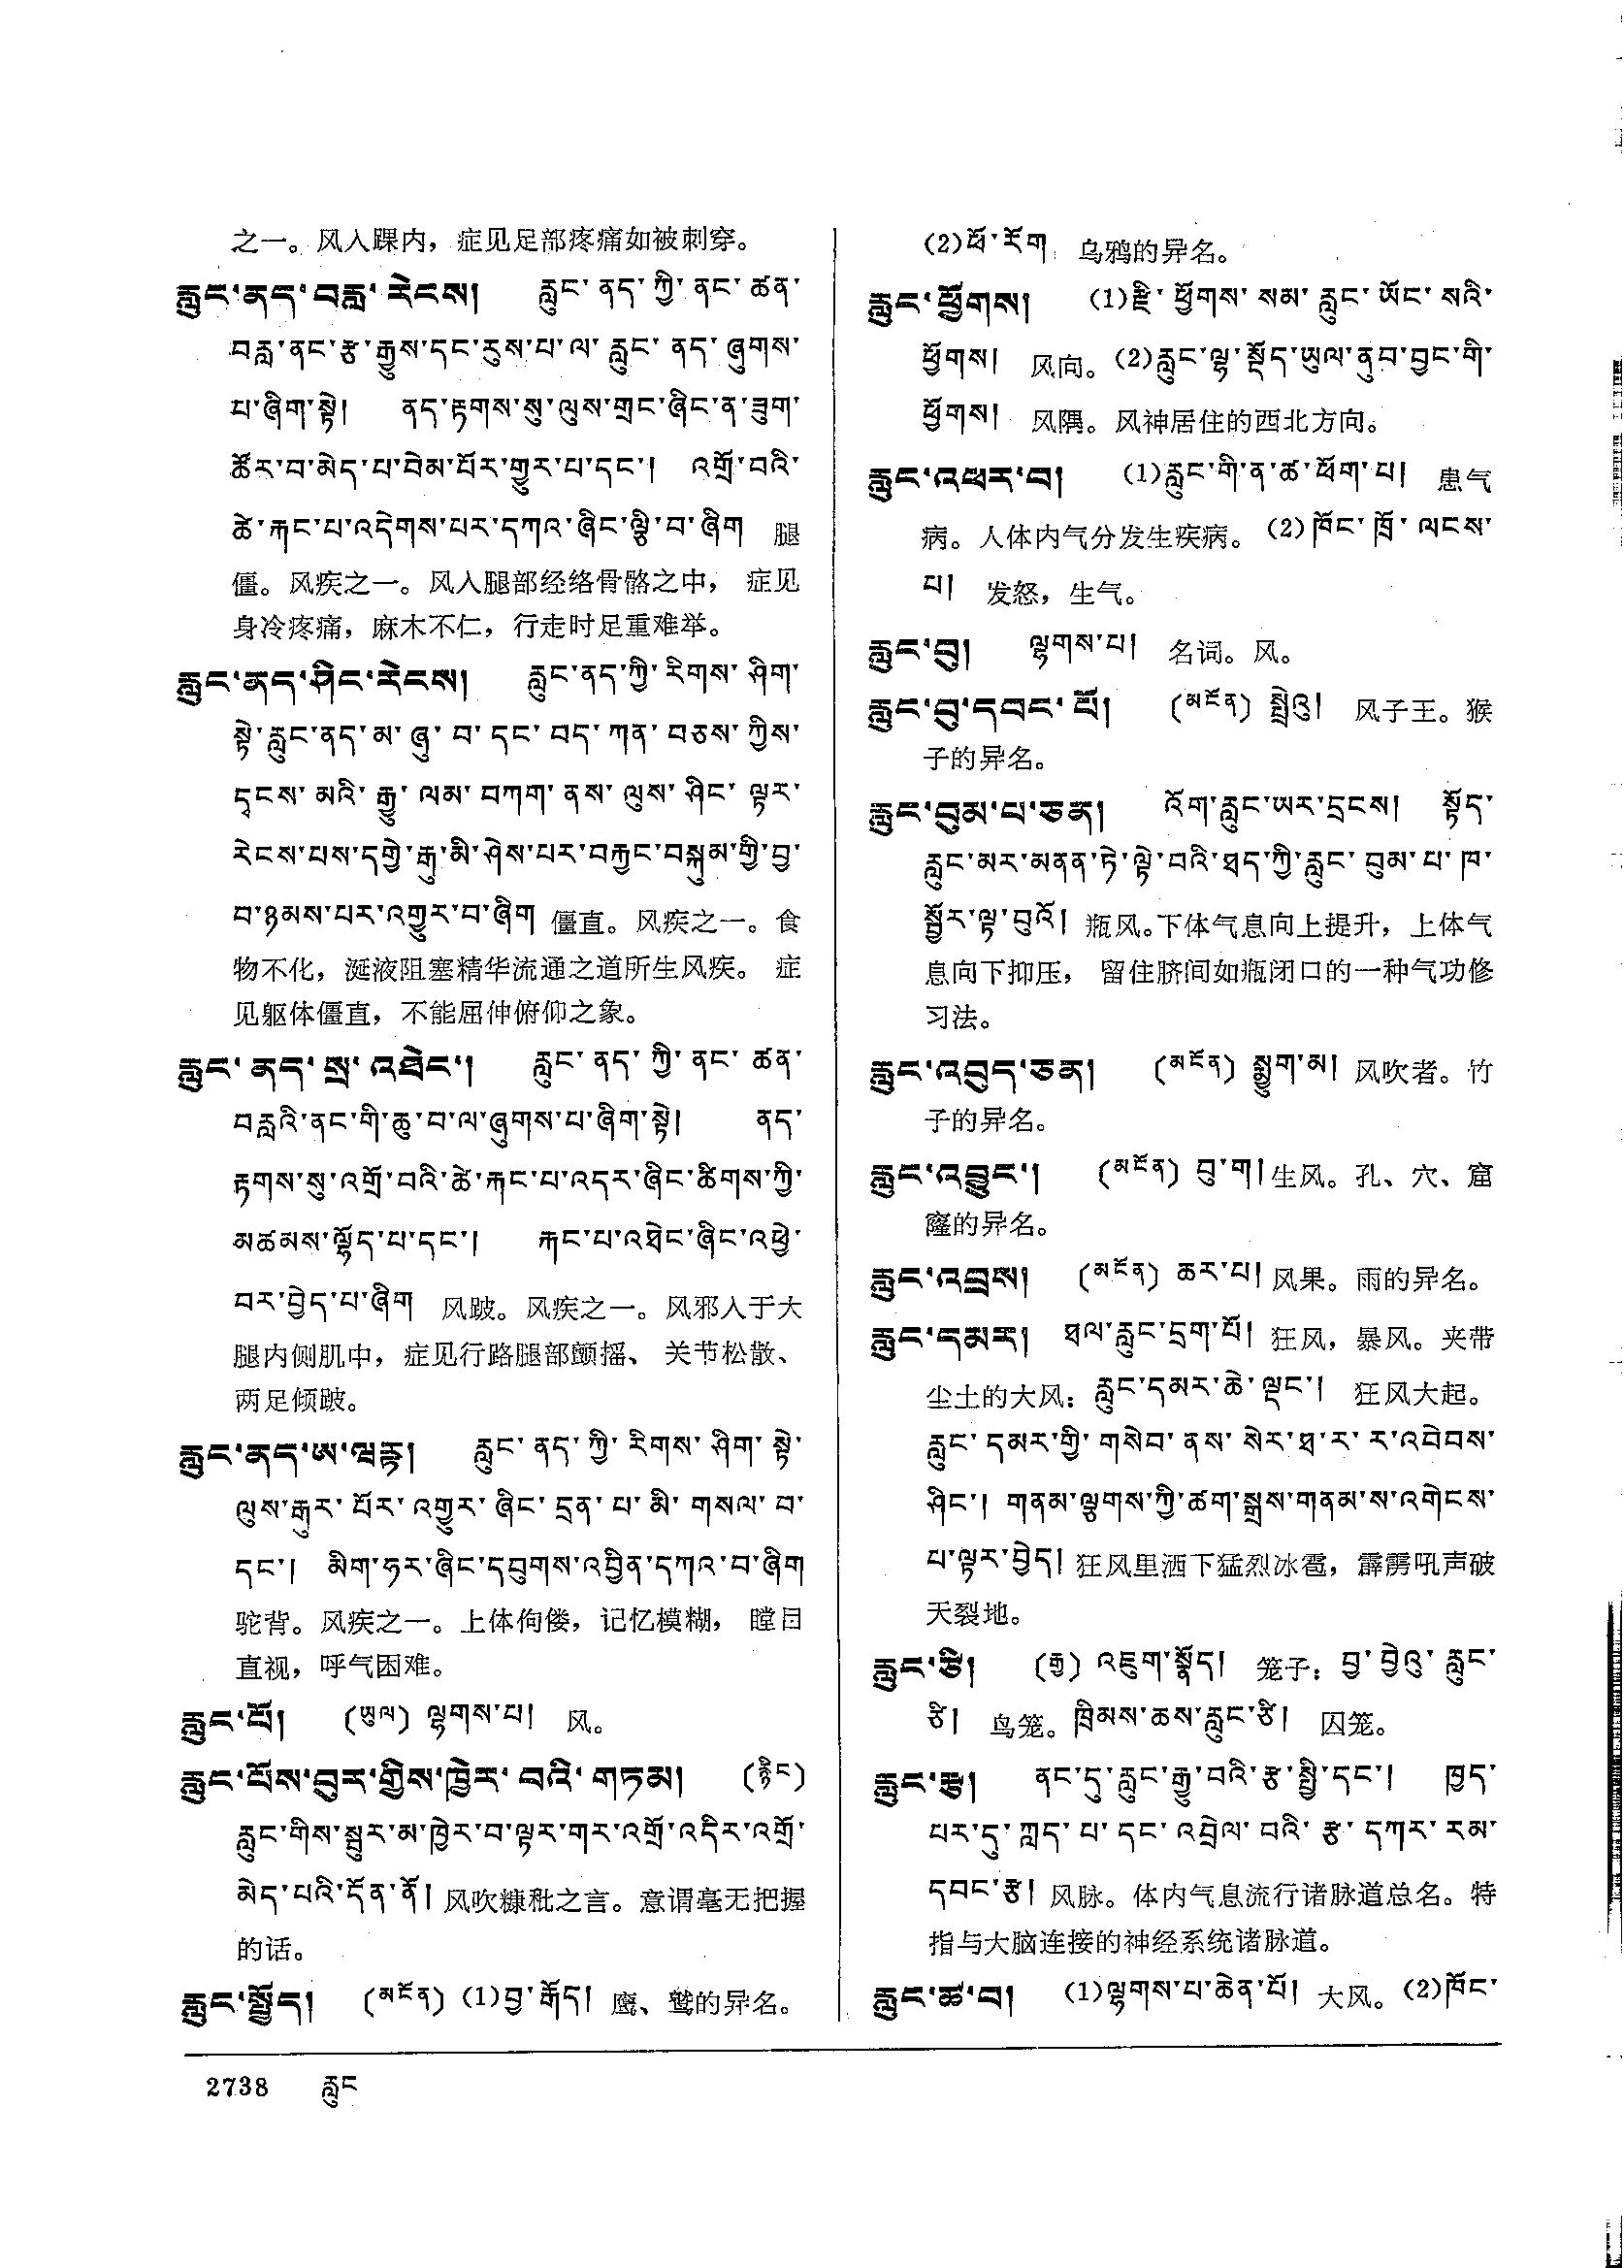 之一。风入踝内，症见足部疼痛如被刺穿。
རླུང་ནད་བརླ་རེངས། རླུང་ནད་ཀྱི་ནང་ཚན་
བརླ་ནང་རྩ་རྒྱུས་དང་རུས་པ་ལ་རླུང་ནད་ཞུགས་
པ་ཞིག་སྟེ། ནད་རྟགས་སུ་ལུས་གྲང་ཞིང་ན་ཟུག་
ཚོར་བ་མེད་པ་བེམ་པོར་གྱུར་པ་དང་། འགྲོ་བའི་
ཚེ་རྐང་པ་འདེགས་པར་དཀའ་ཞིང་ལྕི་བ་ཞིག 腿
僵。风疾之一。风入腿部经络骨骼之中，症见
身冷疼痛，麻木不仁，行走时足重难举。
རླུང་ནད་ཤིང་རེངས། རླུང་ནད་ཀྱི་རིགས་ཤིག་
སྟེ་རླུང་ནད་མ་ཞུ་བ་དང་བད་ཀན་བཅས་ཀྱིས་
དྭངས་མའི་རྒྱུ་ལམ་བཀག་ནས་ལུས་ཤིང་ལྟར་
རེངས་པས་དགྱེ་རྒུ་མི་ཤེས་པར་བརྐྱང་བསྐུམ་གྱི་བྱ་
བ་ཉམས་པར་འགྱུར་བ་ཞིག 僵直。风疾之一。食
物不化，涎液阻塞精华流通之道所生风疾。症
见躯体僵直，不能屈伸俯仰之象。
རླུང་ནད་སྲ་འཐེང་། རླུང་ནད་ཀྱི་ནང་ཚན་
བརླའི་ནང་གི་ཆུ་བ་ལ་ཞུགས་པ་ཞིག་སྟེ། ནད་
རྟགས་སུ་འགྲོ་བའི་ཚེ་རྐང་པ་འདར་ཞིང་ཚིགས་ཀྱི་
མཚམས་ལྷོད་པ་དང་། རྐང་པ་འཐེང་ཞིང་འཕྱེ་
བར་བྱེད་པ་ཞིག 风跛。风疾之一。风邪入于大
腿内侧肌中，症见行路腿部颤摇、关节松散、
两足倾跛。
རླུང་ནད་ཨ་ལརྟ། རླུང་ནད་ཀྱི་རིགས་ཤིག་སྟེ་
ལུས་རྒུར་པོར་འགྱུར་ཞིང་དྲན་པ་མི་གསལ་བ་
དང་། མིག་ཧར་ཞིང་དབུགས་འབྱིན་དཀའ་བ་ཞིག
驼背。风疾之一。上体佝偻，记忆模糊，瞠目
直视，呼气困难。
རླུང་པོ། (ཡུལ) ལྷགས་པ། 风。
རླུང་པོས་བུར་གྱིས་ཁྱེར་བའི་གཏམ། (རྙིང)
རླུང་གིས་སྦུར་མ་ཁྱེར་བ་ལྟར་གར་འགྲོ་འདིར་འགྲོ་
མེད་པའི་དོན་ནོ། 风吹糠秕之言。意谓毫无把握
的话。
རླུང་སྤྱོད། (མངོན) (1)བྱ་རྒོད། 鹰、鹫的异名。
(2)ཕོ་རོག 乌鸦的异名。
རླུང་ཕྱོགས། (1)རྫི་ཕྱོགས་སམ་རླུང་ཡོང་སའི་
ཕྱོགས། 风向。(2)རླུང་ལྷ་སྡོད་ཡུལ་ནུབ་བྱང་གི་
ཕྱོགས། 风隅。风神居住的西北方向。
རླུང་འཕར་བ། (1)རླུང་གི་ན་ཚ་ཕོག་པ། 患气
病。人体内气分发生疾病。(2)ཁོང་ཁྲོ་ལངས་
པ། 发怒，生气。
རླུང་བུ། ལྷགས་པ། 名词。风。
རླུང་བུ་དབང་པོ། (མངོན) སྤྲེའུ། 风子王。猴
子的异名。
རླུང་བུམ་པ་ཅན། འོག་རླུང་ཡར་དྲངས། སྟོད་
རླུང་མར་མནན་ཏེ་ལྟེ་བའི་ཐད་ཀྱི་རླུང་བུམ་པ་ཁ་
སྦྱོར་ལྟ་བུའོ། 瓶风。下体气息向上提升，上体气
息向下抑压，留住脐间如瓶闭口的一种气功修
习法。
རླུང་འབུད་ཅན། (མངོན) སྨྱུག་མ། 风吹者。竹
子的异名。
རླུང་འབྱུང་། (མངོན) བུ་ག། 生风。孔、穴、窟
窿的异名。
རླུང་འབྲས། (མངོན) ཆར་པ། 风果。雨的异名。
རླུང་དམར། ཐལ་རླུང་དྲག་པོ། 狂风，暴风。夹带
尘土的大风：རླུང་དམར་ཆེ་ལྡང་། 狂风大起。
རླུང་དམར་གྱི་གསེབ་ནས་སེར་ཐ་ར་ར་འབེབས་
ཤིང་། གནམ་ལྕགས་ཀྱི་ཚག་སྒྲས་གནམ་ས་འགེངས་
པ་ལྟར་བྱེད། 狂风里洒下猛烈冰雹，霹雳吼声破
天裂地。
རླུང་ཙི། (རྒྱ) འཇུག་སྣོད། 笼子：བྱ་བྱེའུ་རླུང་
ཙི། 鸟笼。ཁྲིམས་ཆས་རླུང་ཙི། 囚笼。
རླུང་རྩ། ནང་དུ་རླུང་རྒྱུ་བའི་རྩ་སྤྱི་དང་། ཁྱད་
པར་དུ་ཀླད་པ་དང་འབྲེལ་བའི་རྩ་དཀར་རམ་
དབང་རྩ། 风脉。体内气息流行诸脉道总名。特
指与大脑连接的神经系统诸脉道。
རླུང་ཚ་བ། (1)ལྷགས་པ་ཆེན་པོ། 大风。(2)ཁོང་
2738 རླུང